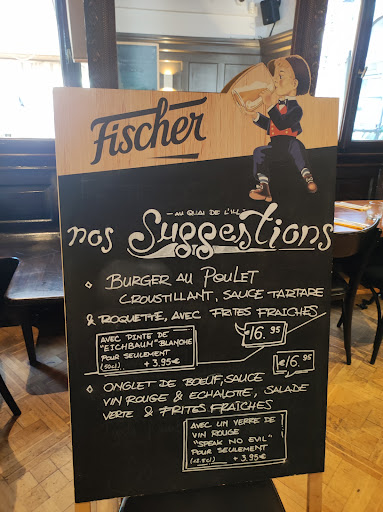 Fischer
AU QUAI DE L'ILL
nos Suggestions
◇ BURGER AU POULET
CROUSTILLANT, SAUCE TARTARE
& ROQUETTE, AVEC FRITES FRAICHES
€16.95
AVEC PINTE DE
"EICHBAUM" BLANCHE
POUR SEULEMENT
(50cl) + 3.95€
€16.95
◇ ONGLET DE BOEUF, SAUCE
VIN ROUGE & ECHALOTTE, SALADE
VERTE & FRITES FRAÎCHES
AVEC UN VERRE DE
VIN ROUGE
"SPEAK NO EVIL"
POUR SEULEMENT
(12.5cl) + 3.95€